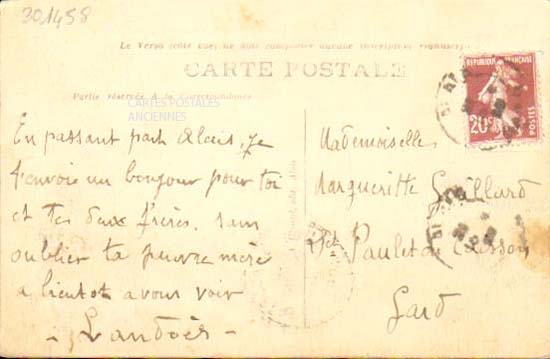 301458
Le Verso (côté vue) ne doit comporter aucune inscription manuscrite.
CARTE POSTALE
Partie réservée à la Correspondance
CARTES POSTALES
ANCIENNES
REPUBLIQUE FRANÇAISE
20c
POSTES
En passant par Alais, je
t'envoie un bonjour pour toi
et tes deux frères. sans
oublier ta pauvre mère
a bientot a vous voir
- Landoès -
Mademoiselle
Margueritte Gaillard
St Paulet de Caisson
Gard